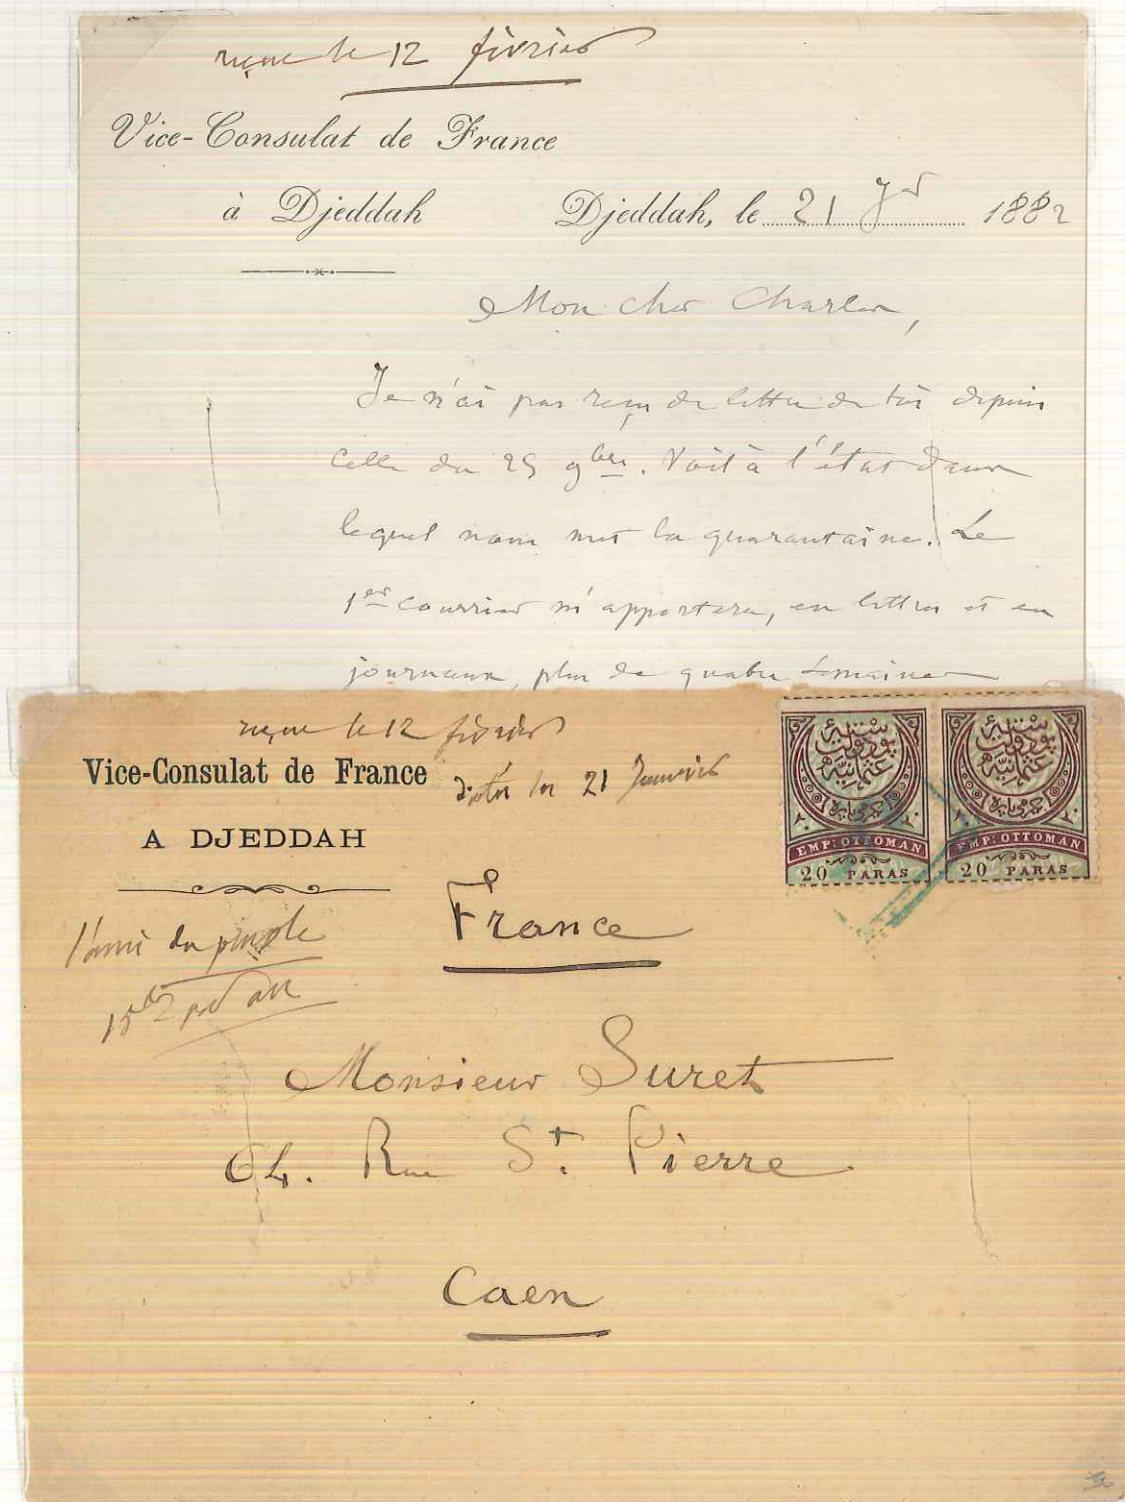 reçue le 12 février
Vice-Consulat de France
à Djeddah
Djeddah, le 21 Jer 1882
Mon cher Charles,
Je n'ai pas reçu de lettre de toi depuis
celle du 25 9bre. Voilà l'état dans
lequel nous met la quarantaine. Le
1er courrier m'apportera, en lettres et en
journaux, plus de quatre semaines
reçue le 12 février
Vice-Consulat de France
datée du 21 Janvier
A DJEDDAH
EMP: OTTOMAN
20 PARAS
EMP: OTTOMAN
20 PARAS
France
l'ami du peuple
par an
Monsieur Suret
64. Rue St. Pierre
Caen